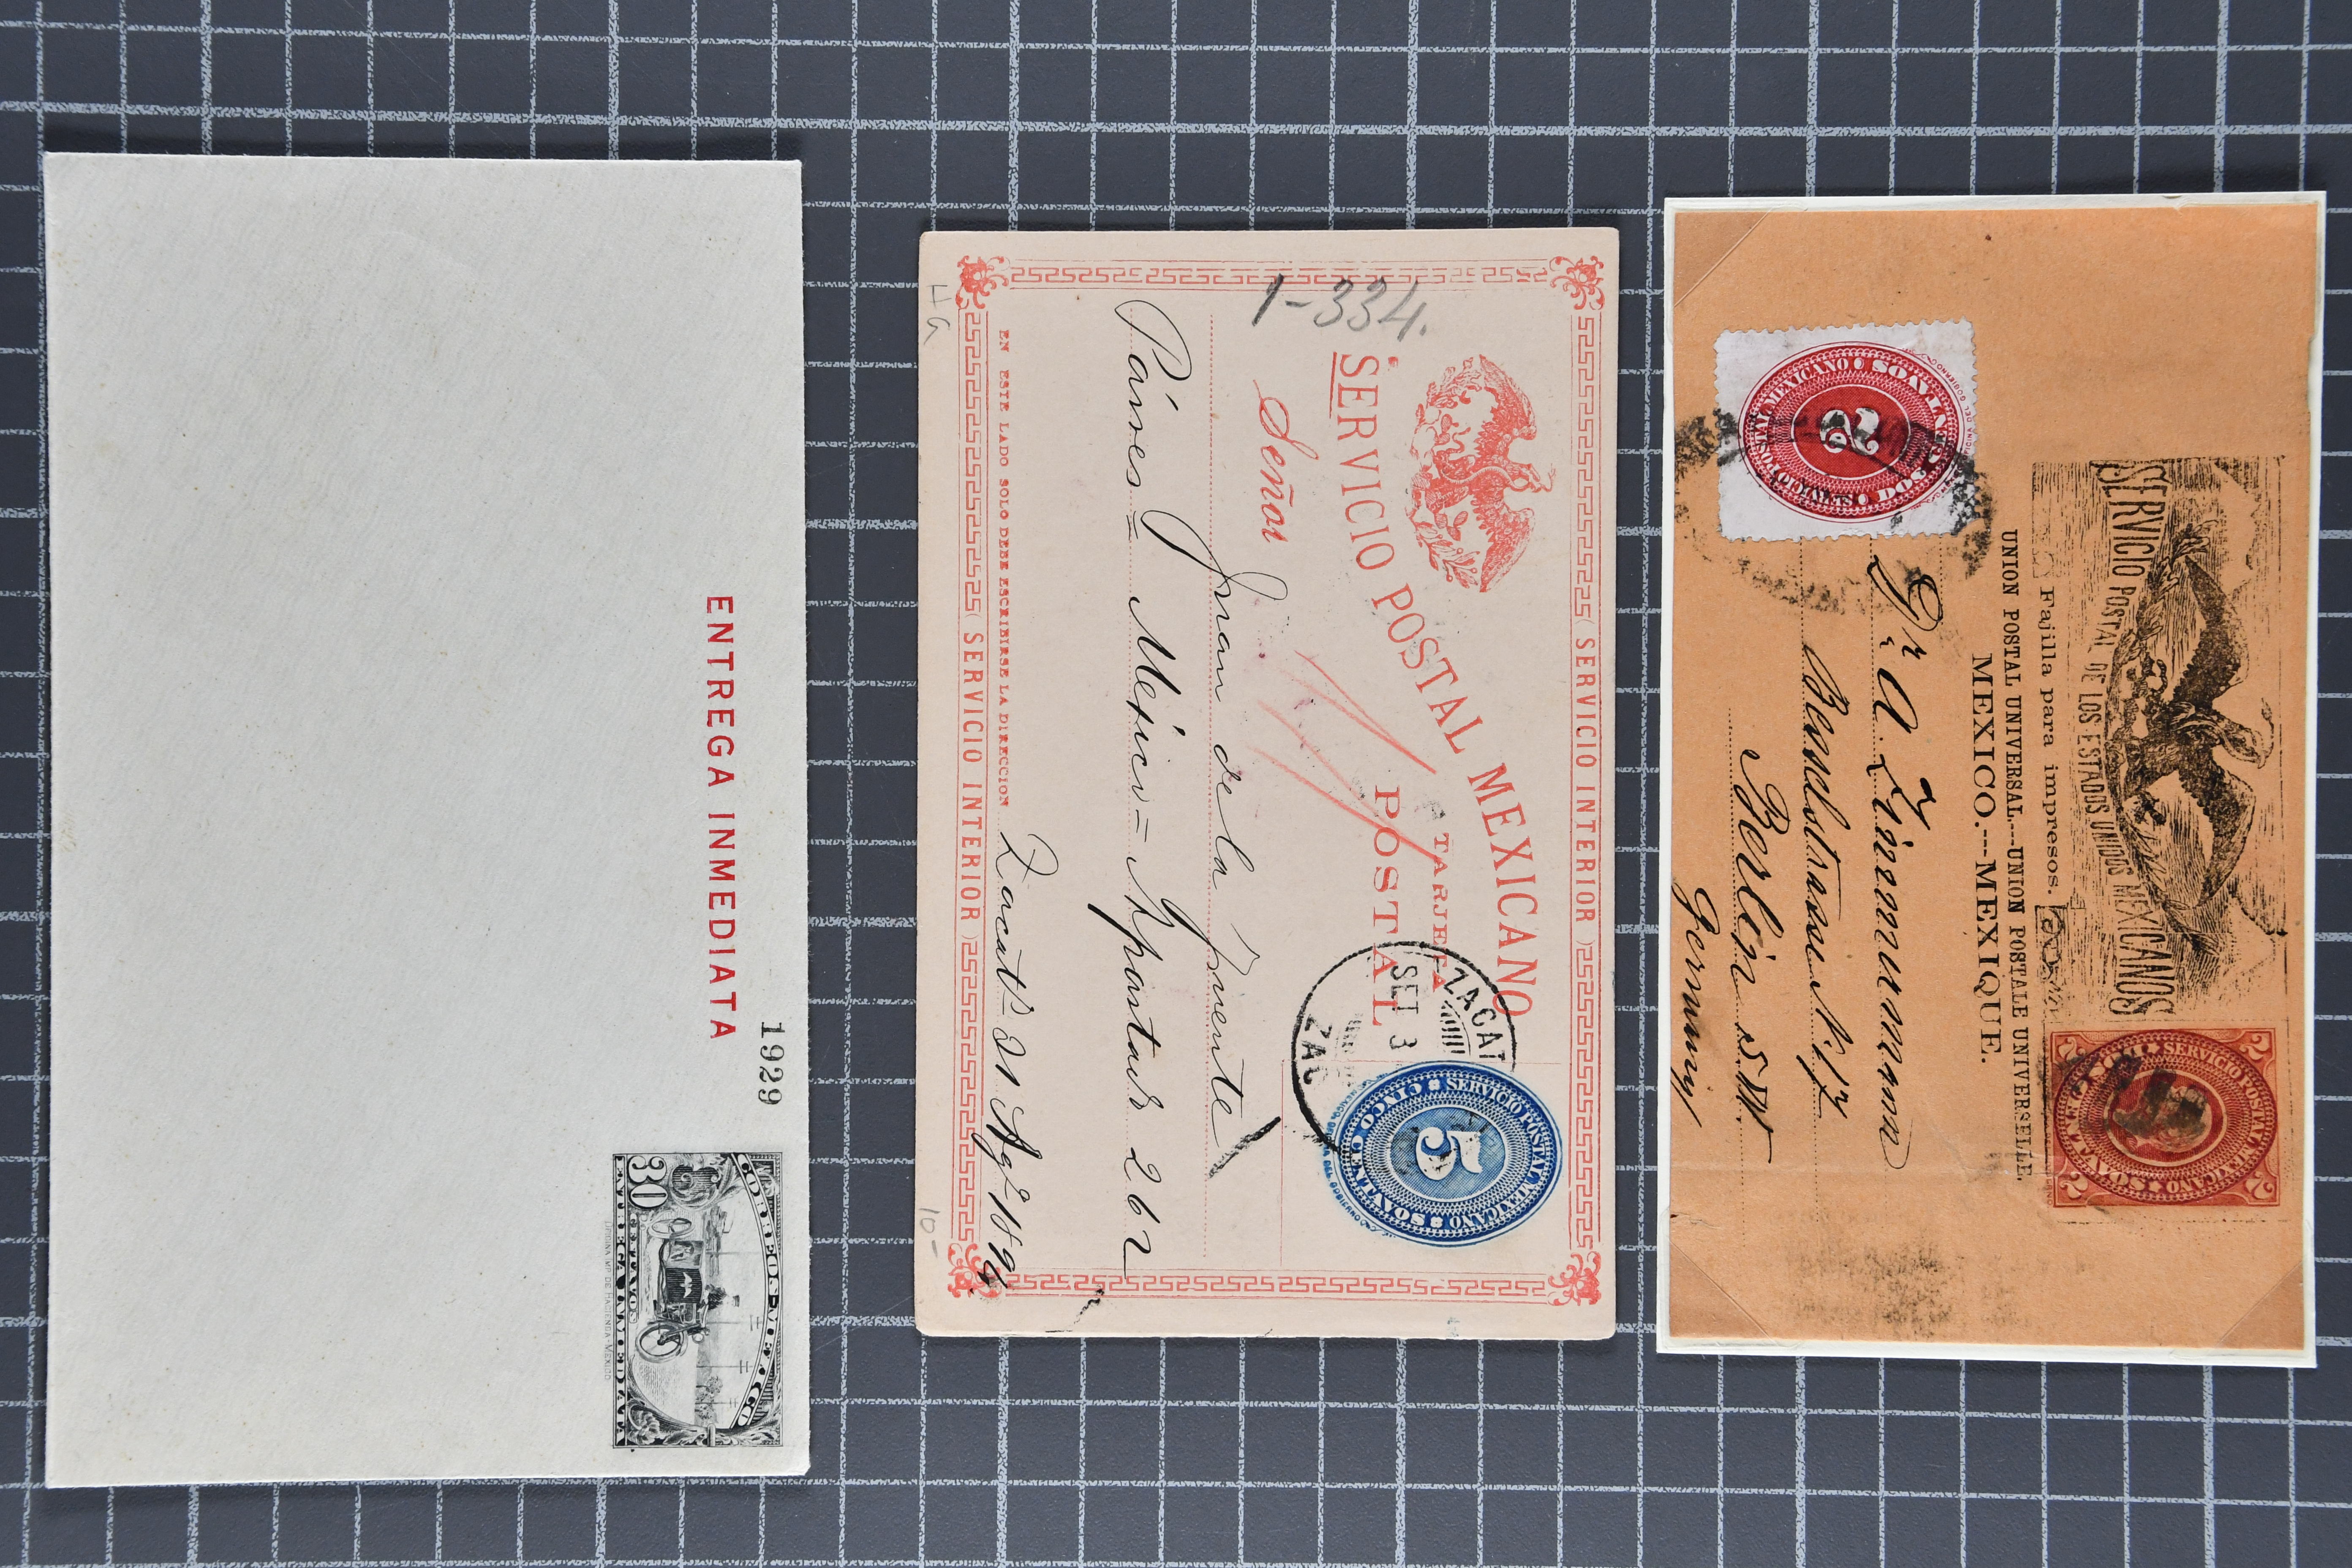 1929
ENTREGA INMEDIATA
CORREOS MEXICO
30
CENTAVOS
ENTREGA INMEDIATA
OFICINA IMP. DE HACIENDA-MEXICO
SERVICIO INTERIOR
SERVICIO POSTAL MEXICANO
TARJETA
POSTAL
1-334.
ZACAT
SET 3
ZAC
SERVICIO POSTAL MEXICANO
5
CINCO CENTAVOS
Señor
Juan de la Fuente
Párres = México = Apartado 262
Zacats 31 Agto 1894
EN ESTE LADO SOLO DEBE ESCRIBIRSE LA DIRECCION
SERVICIO INTERIOR
HG
10-
SERVICIO POSTAL DE LOS ESTADOS UNIDOS MEXICANOS
Fajilla para impresos.
UNION POSTAL UNIVERSAL.--UNION POSTALE UNIVERSELLE.
MEXICO.---MEXIQUE.
2 2
SERVICIO POSTAL MEXICANO
DOS CENTAVOS
2 2
SERVICIO POSTAL MEXICANO
DOS CENTAVOS
2
Dr. A. Zimmermann
Besselstrasse N. 17
Berlin S.W.
Germany